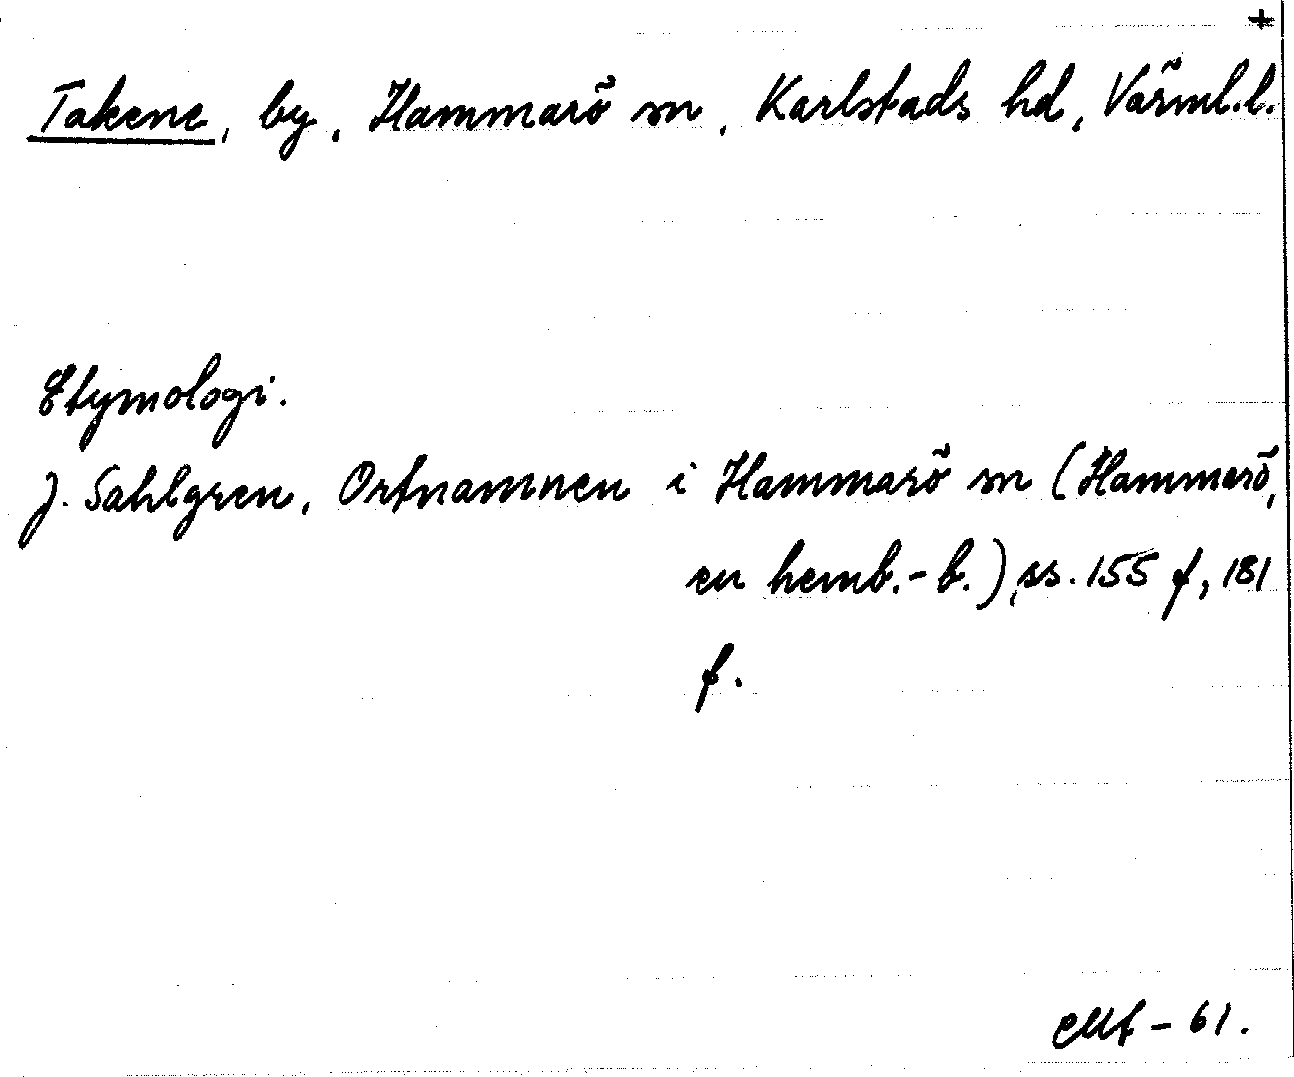 +
Takene, by, Hammarö sn, Karlstads hd, Värml.l.
Etymologi.
J. Sahlgren, Ortnamnen i Hammarö sn (Hammarö,
en hemb.-b.), ss. 155 f, 181
f.
-61.